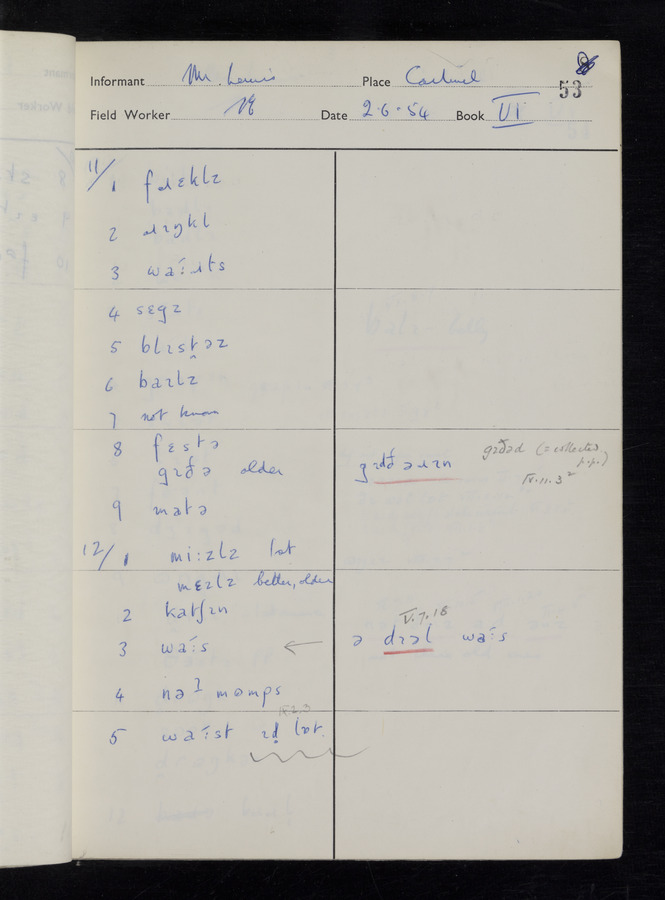 Informant Mr. Lewis Place Cartmel 53
Field Worker Date 2·6·54 Book VI
11/1 fɹɛklz
2 ɹɪŋkl
3 waːɹts
4 sɛgz
5 blɪstəz
6 baɪlz
7 not known
8 fɛstə
gɪðə older
gɪðəɹɪn gɪðəd (= collected p.p.)
IV.11.3²
9 matə
12/1 miːzlz lat
mɛzlz better, older
2 katʃɪn
V.7.18
3 waːs ← ə dɪəl waːs
4 nəʔ momps
IX.2.3
5 waːst ɪḍ lɒt